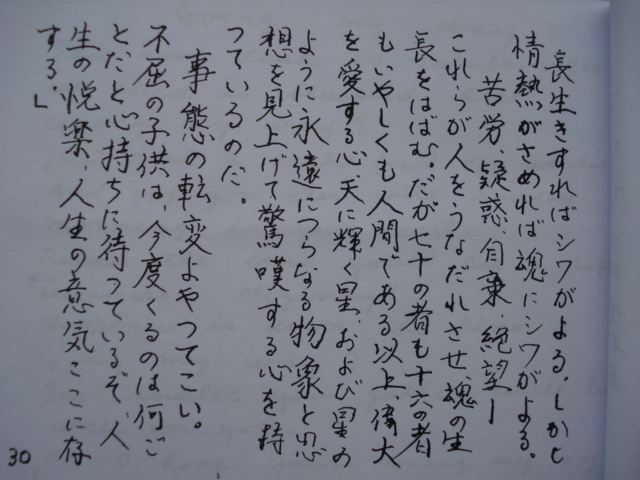 長生きすればシワがよる。しかし
情熱がさめれば魂にシワがよる。
苦労、疑惑、自棄、絶望ー
これらが人をうなだれさせ、魂の生
長をはばむ。だが七十の者も十六の者
もいやしくも人間である以上、偉大
を愛する心、天に輝く星、および星の
ように永遠につらなる物象と思
想を見上げて驚嘆する心を持
っているのだ。
事態の転変よやってこい。
不屈の子供は、今度くるのは何ご
とだと心持ちに待っているぞ、人
生の悦楽、人生の意気ここに存
する。」
30